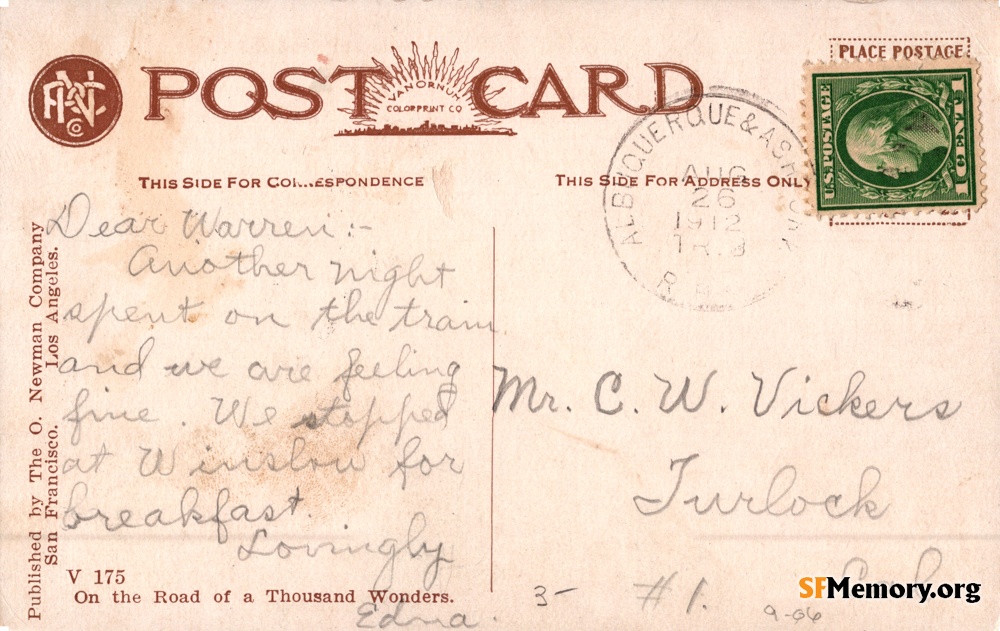 POST CARD
VAN ORNUM
COLORPRINT CO
PLACE POSTAGE
U.S. POSTAGE
1 CENT 1
ALBUQUERQUE & ASH
AUG
26
1912
R
THIS SIDE FOR CORRESPONDENCE
THIS SIDE FOR ADDRESS ONLY
Published by The O. Newman Company
San Francisco. Los Angeles.
Dear Warren:-
Another night
spent on the train
and we are feeling
fine. We stopped
at Winslow for
breakfast.
Lovingly
Edna.
Mr. C. W. Vickers
Turlock
Cal
#1.
V 175
On the Road of a Thousand Wonders.
3-
9-06
SFMemory.org